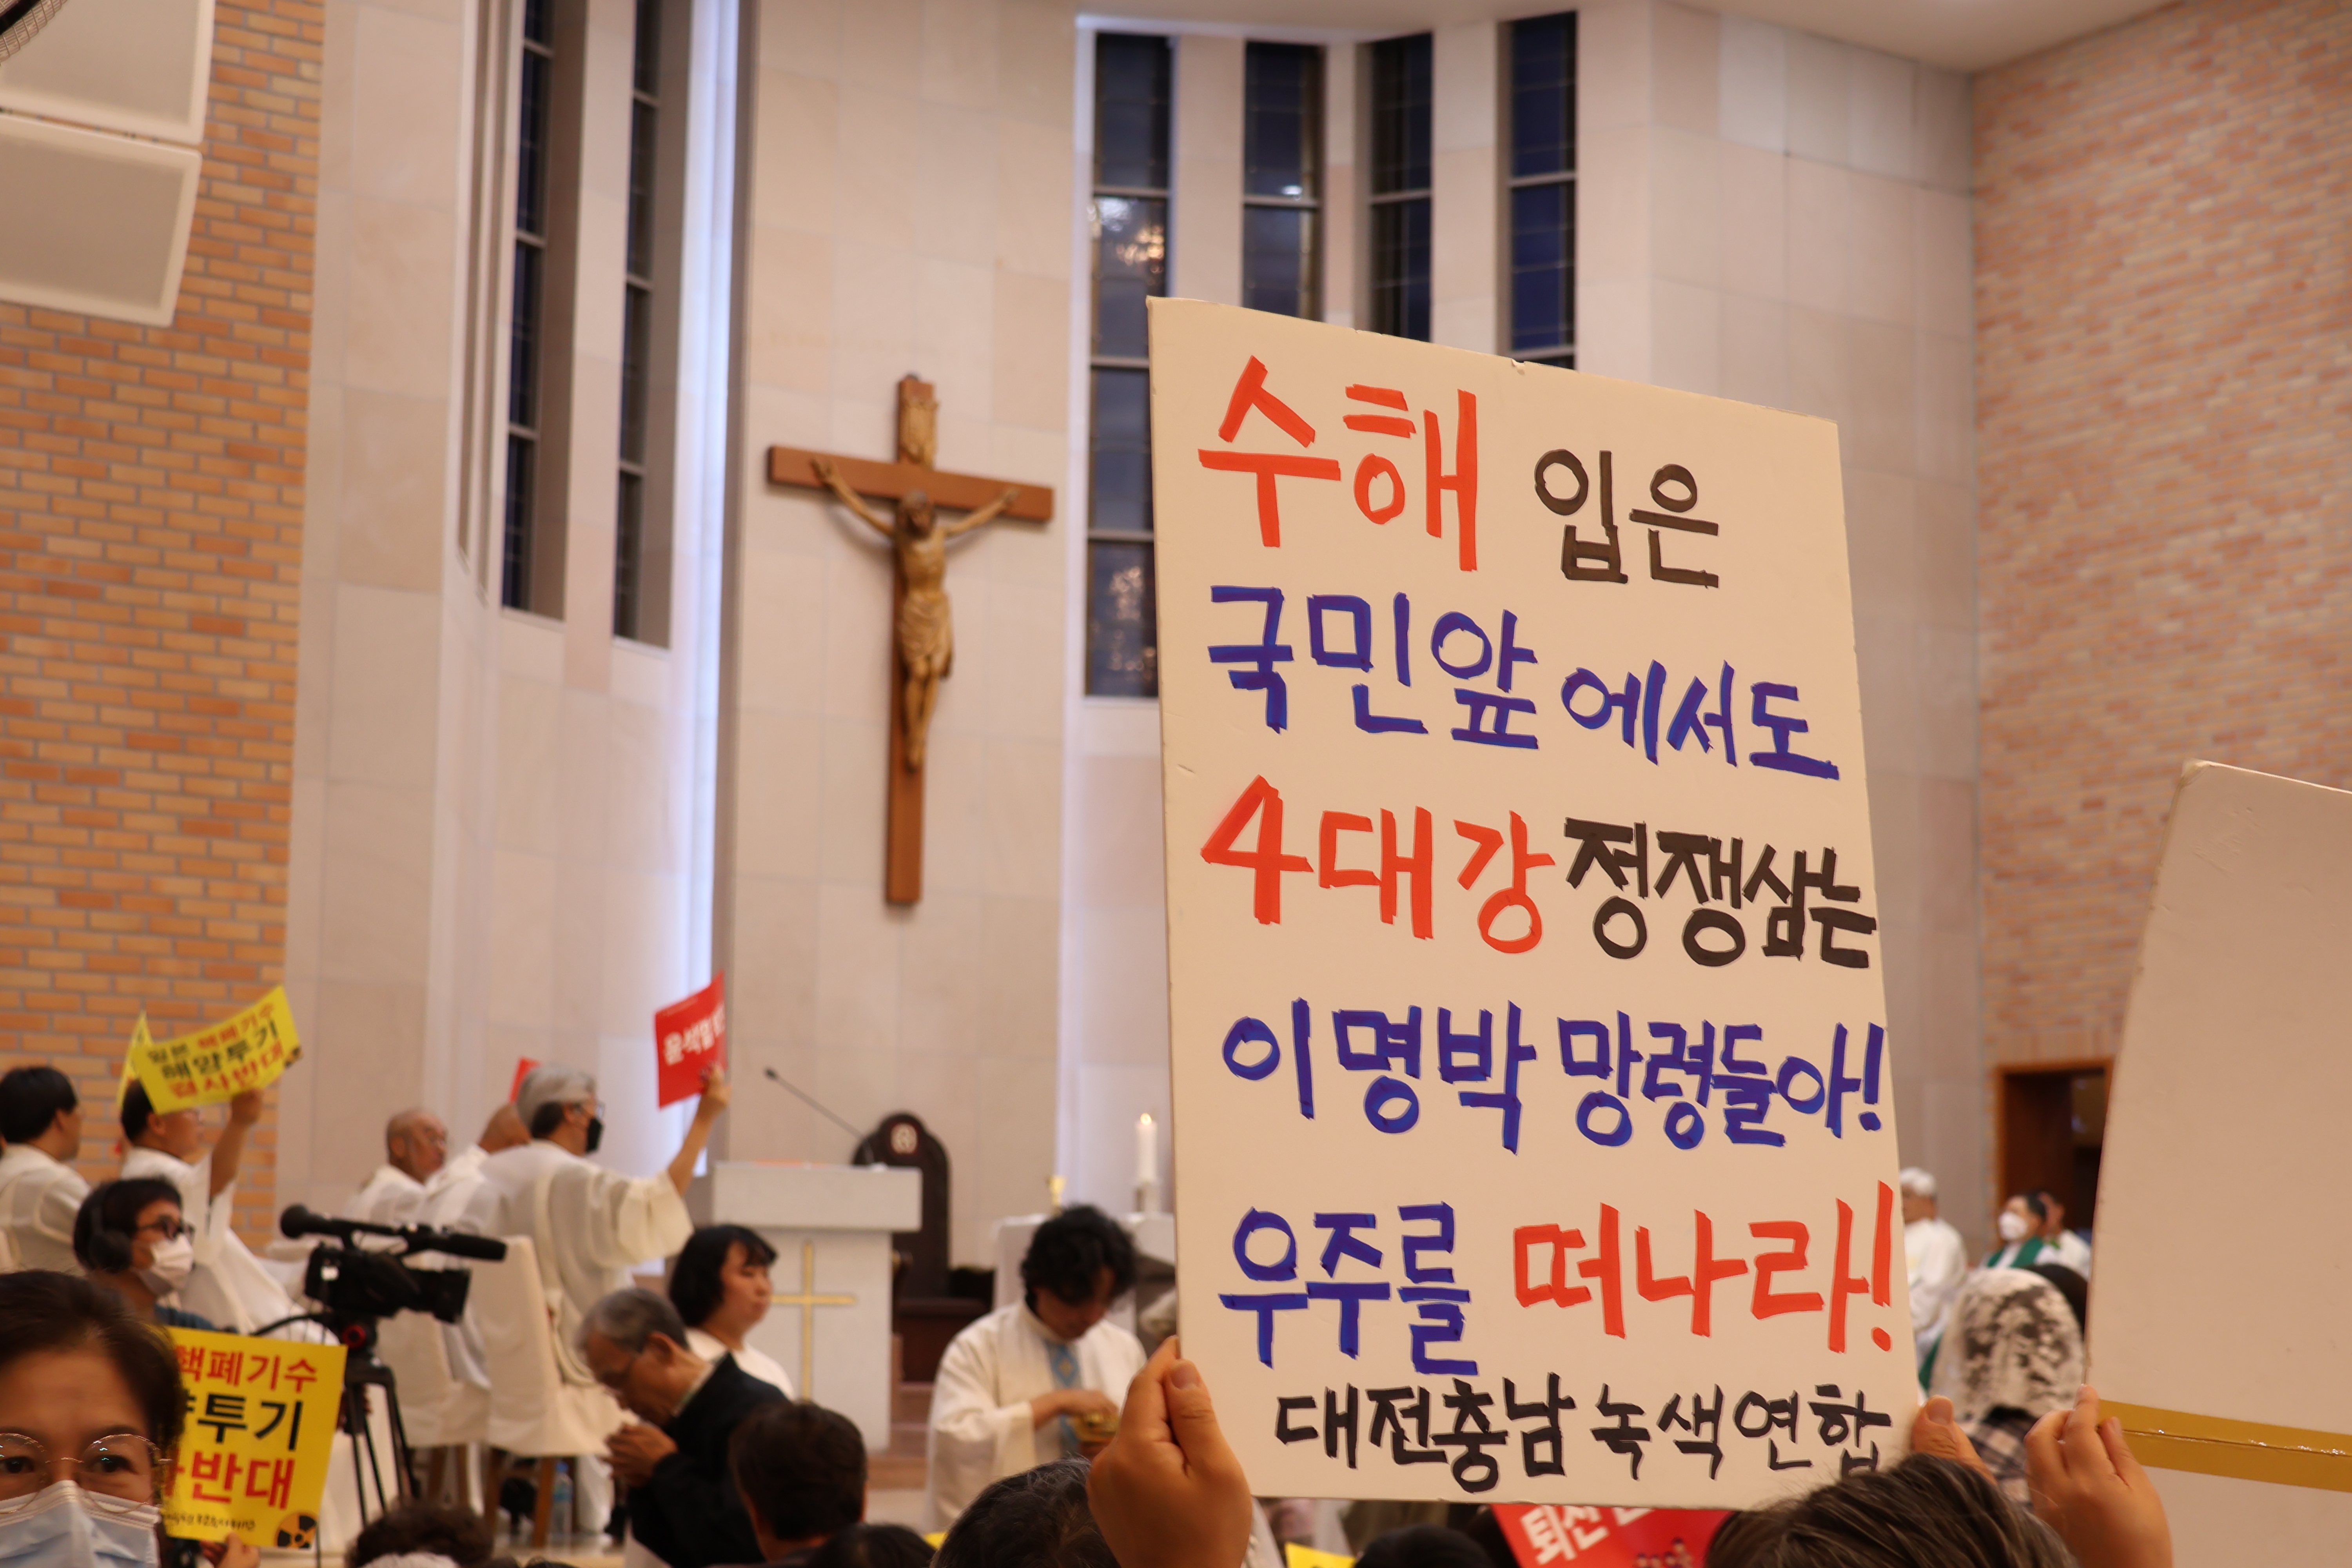 수해 입은
국민앞에서도
4대강 정쟁삼는
이명박 망령들아!
우주를 떠나라!
대전충남 녹색연합
일본 핵폐기수
해양투기
결사반대
윤석열
핵폐기수
투기
반대
퇴진